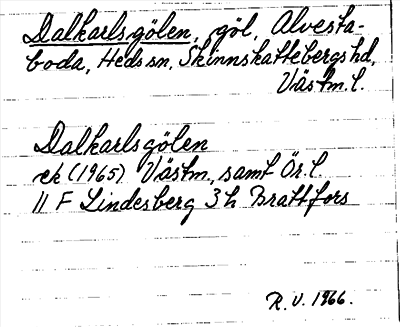 Dalkarlsgölen, göl, Alvesta-
boda, Heds sn, Skinnskattebergs hd,
Västm. l.
Dalkarlsgölen
ek (1965) Västm., samt Ör. l.
11 F Lindesberg 3 h Brattfors
R. V. 1966.